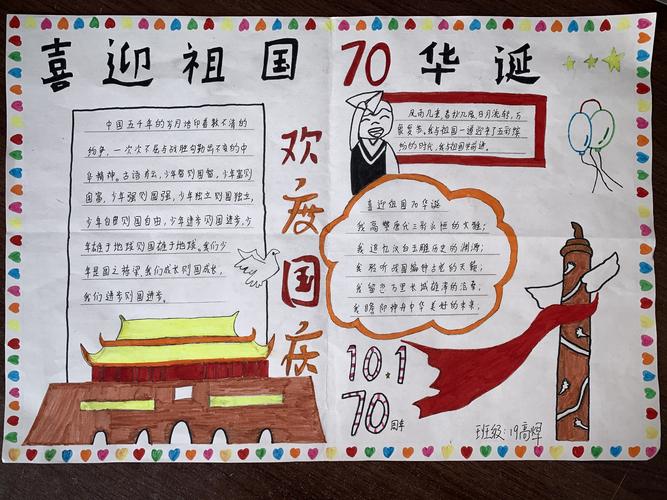 喜迎祖国70华诞
中国五千年的岁月烙印着数不清的
纷争,一次次不屈与战胜勾勒出不变的中
华精神。古语有云,少年智则国智,少年富则
国富,少年强则国强,少年独立则国独立,
少年自由则国自由,少年进步则国进步,少
年雄于地球则国雄于地球。我们少
年是国之栋梁,我们成长则国成长,
我们进步则国进步。
欢度国庆
风雨几重,春秋几度,日月流转,万
象更新。我与祖国一道迎来了五彩缤
纷的时代,我与祖国共前进。
喜迎祖国70华诞
我高擎唐代三彩永恒的火雅;
我追忆汉白玉雕历史的渊源;
我聆听战国编钟古老的天籁;
我留恋万里长城雄浑的沧桑;
我瞻仰神舟中华美好的未来;
10.1
70周年
班级:19高焊